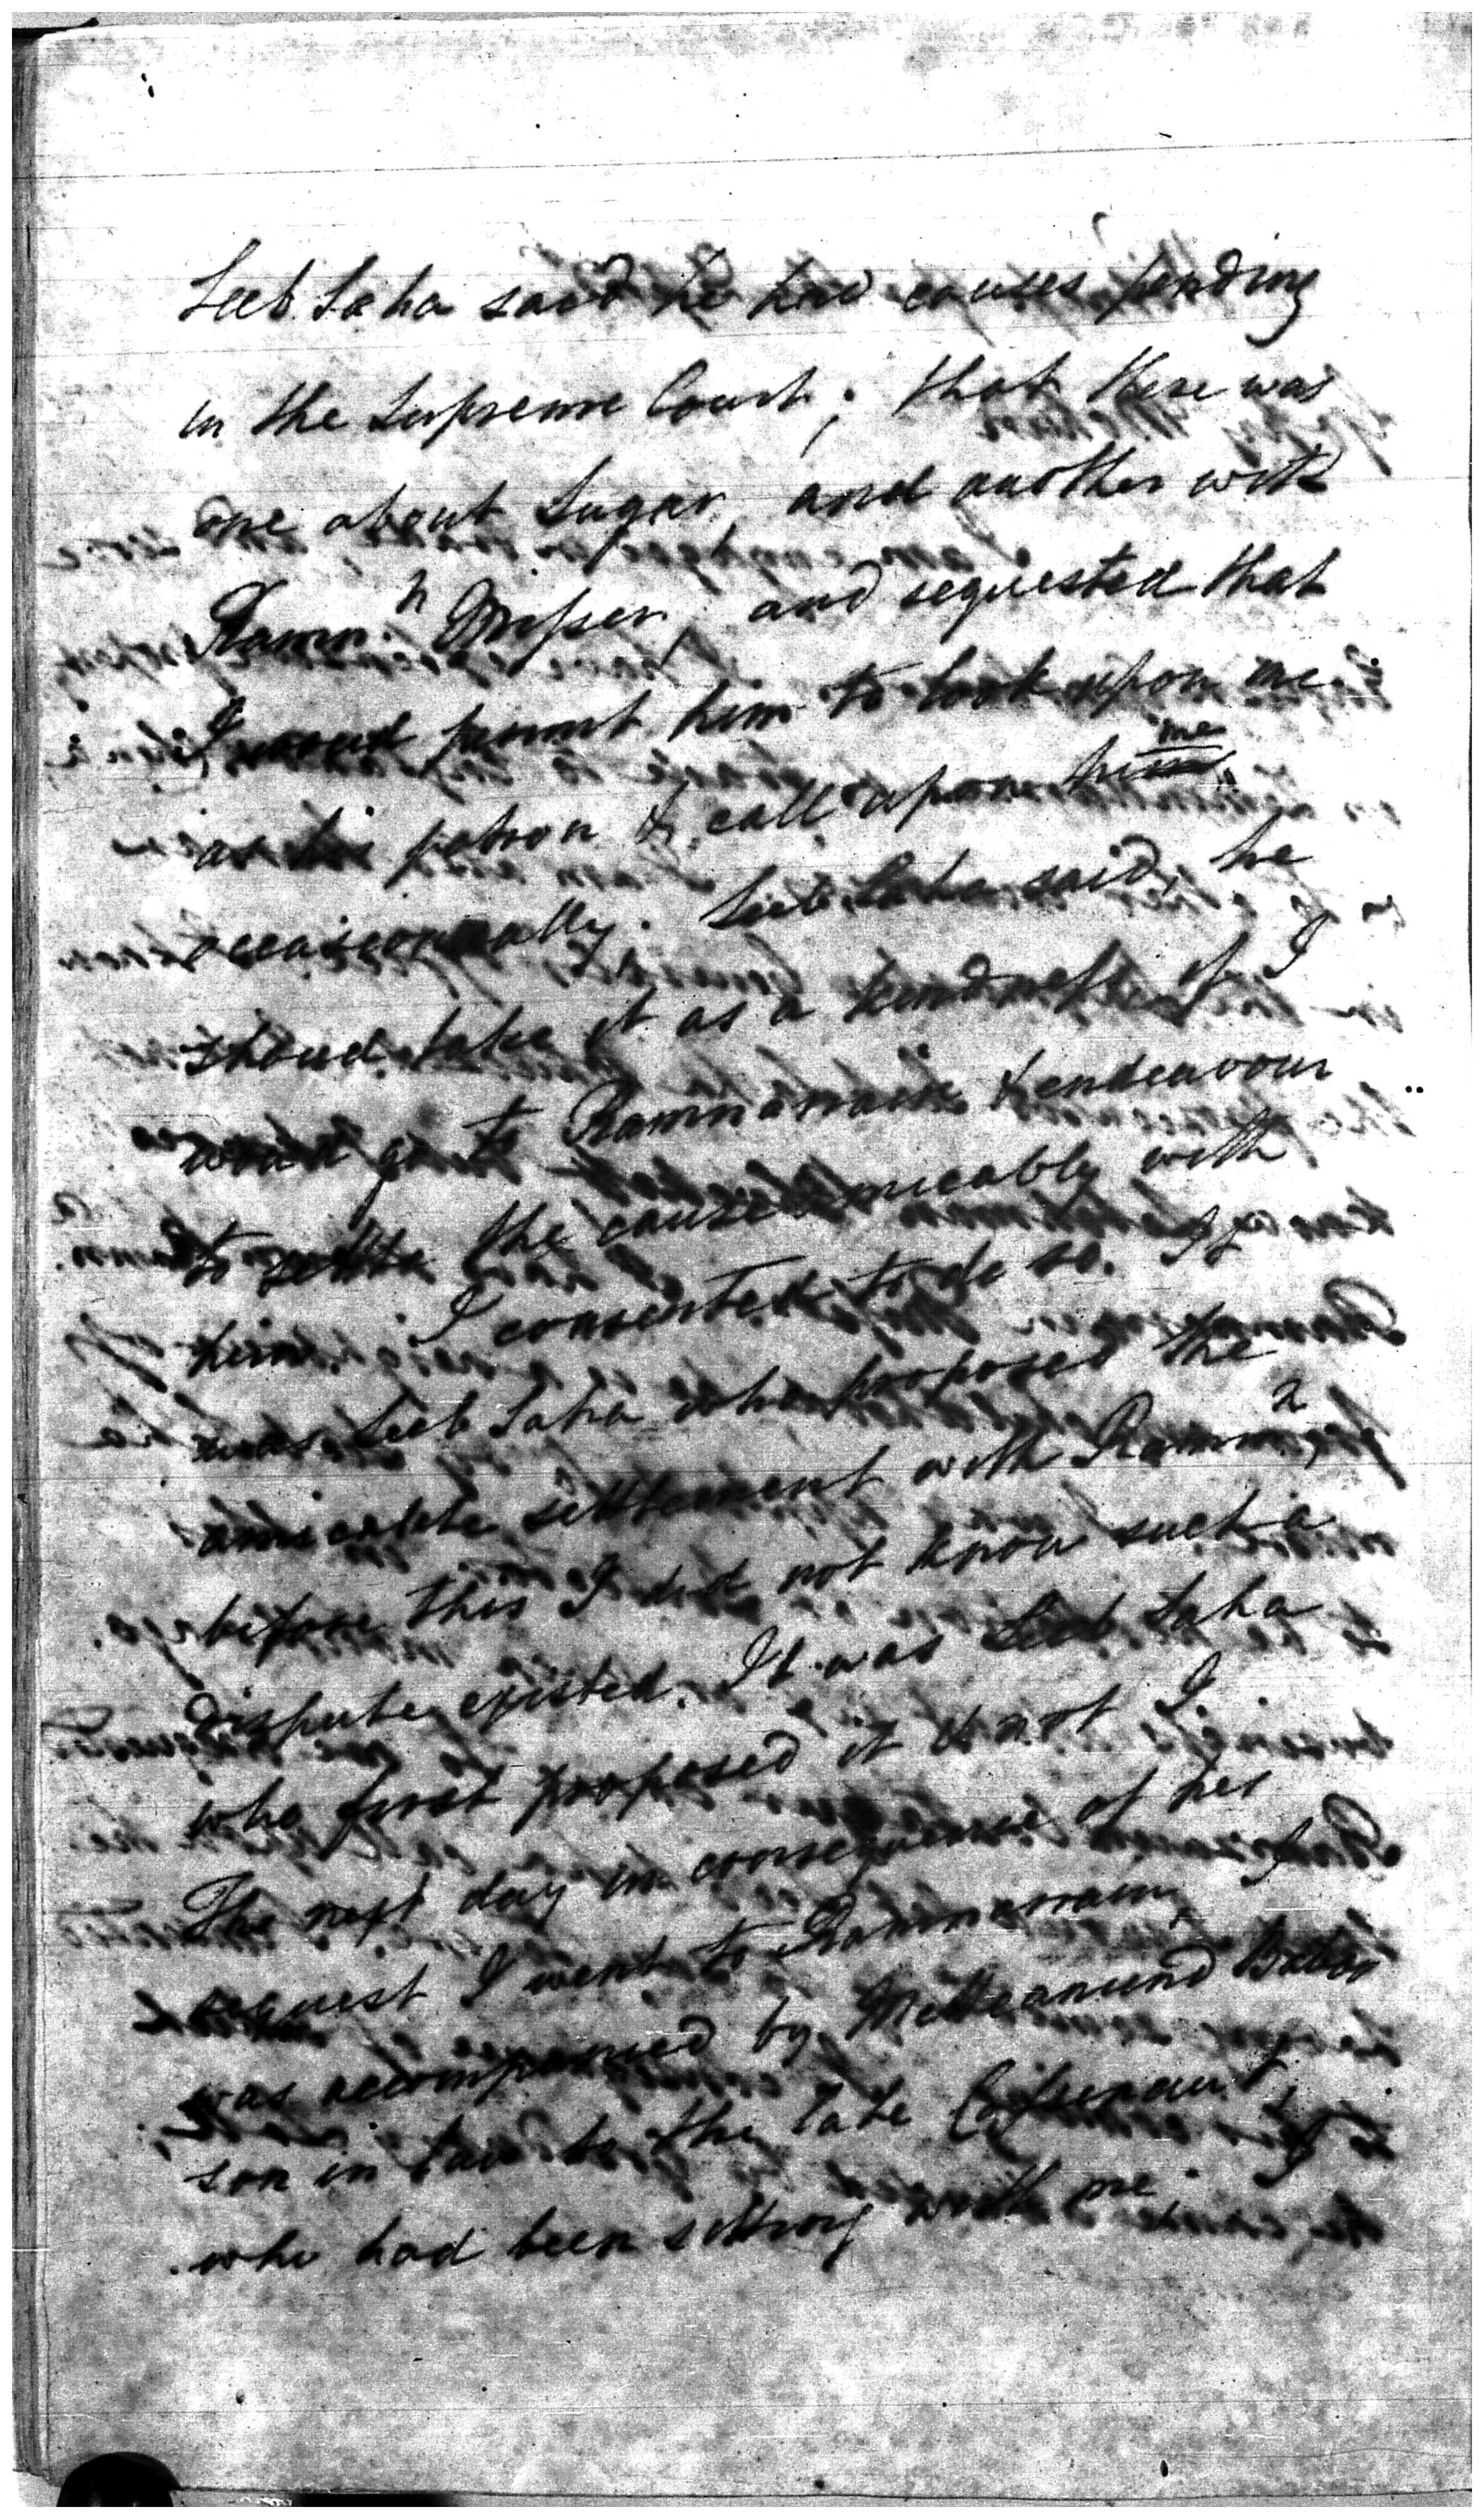 Seeb Saha said he had causes pending
in the Supreme Court; that there was
one about Sugar, and another with
Ramn.n Misser, and requested that
I woud permit him to look upon me
as his patron & call upon him me
occasionally. Seeb Saha said, he
shoud take it as a kindness if I
woud go to Ramnarrain & endeavour
to settle the cause amicably with
him. I consented to do so. It
was Seeb Saha who proposed the
amicable settlement with Ramn.n,
before this I did not know such a
dispute existed. It was Seeb Saha
who first proposed it & not I
The next day in consequence of his
request I went to Ramnarrain, I
was accompanied by Baboo
son in law to the late
who had been sitting with me. I